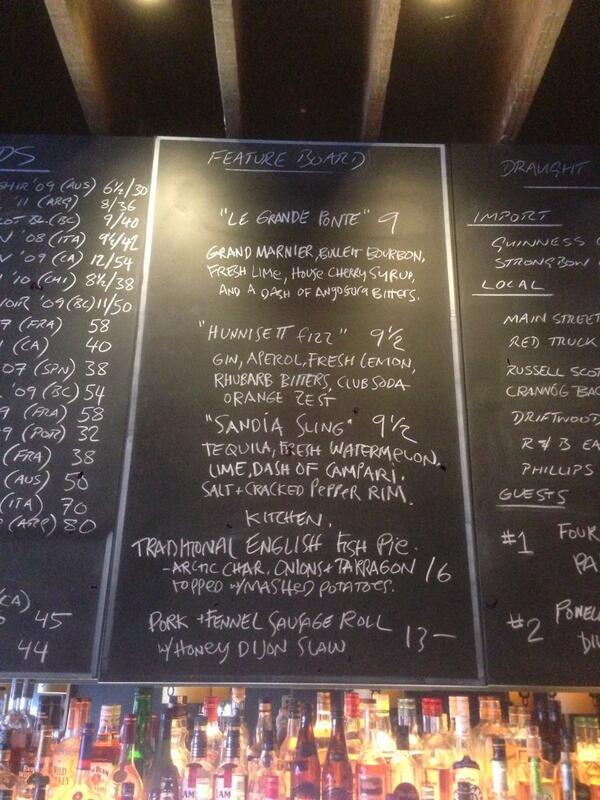 DS
HIR '09 (AUS) 6½/30
'11 (ARG) 8/36
OT BL. (BC) 9/40
'08 (ITA) 9½/42
'09 (CA) 12/54
'10 (CHI) 8½/38
OIR '09 (BC) 11/50
(FRA) 58
(CA) 40
07 (SPN) 38
'09 (BC) 54
9 (FRA) 58
9 (POR) 32
(FRA) 38
(AUS) 50
(ITA) 70
(ARG) 80
(CA) 45
44
FEATURE BOARD
"LE GRANDE PONTE" 9
GRAND MARNIER, BULLEIT BOURBON,
FRESH LIME, HOUSE CHERRY SYRUP,
AND A DASH OF ANGOSTURA BITTERS.
"HUNNISETT FIZZ" 9½
GIN, APEROL, FRESH LEMON,
RHUBARB BITTERS, CLUB SODA
ORANGE ZEST
"SANDÍA SLING" 9½
TEQUILA, FRESH WATERMELON,
LIME, DASH OF CAMPARI.
SALT + CRACKED PEPPER RIM.
KITCHEN.
TRADITIONAL ENGLISH FISH PIE.
- ARCTIC CHAR, ONIONS + TARRAGON 16
TOPPED W/MASHED POTATOES.
PORK + FENNEL SAUSAGE ROLL 13-
W/HONEY DIJON SLAW
DRAUGHT
IMPORT
GUINNESS
STRONGBOW
LOCAL
MAIN STREET
RED TRUCK
RUSSELL SCOT
CRANNÓG BAC
DRIFTWOOD
R & B EA
PHILLIPS
GUESTS
#1 FOUR
PA
#2 POWELL
DI